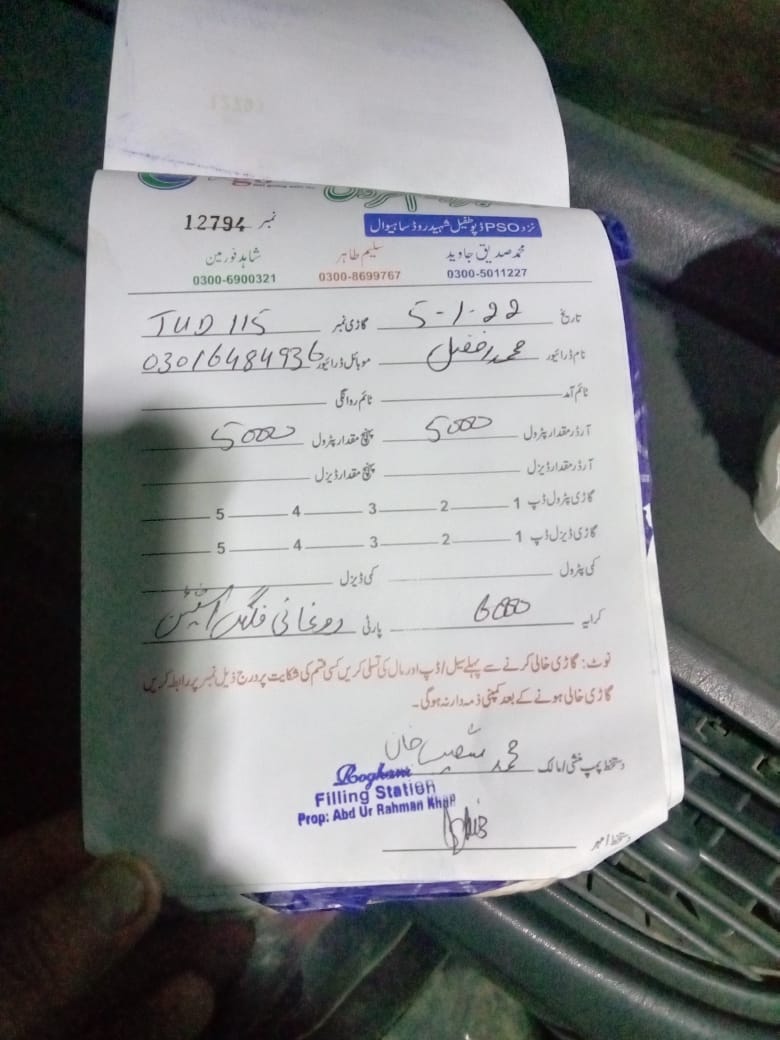 نزد PSO ڈپو طفیل شہید روڈ ساہیوال
نمبر 12794
محمد صدیق جاوید سلیم طاہر شاہد نورمین
0300-5011227 0300-8699767 0300-6900321
تاریخ 5-1-22 گاڑی نمبر TUD 115
نام ڈرائیور محمد افضل موبائل ڈرائیور 03016484936
ٹائم آمد ٹائم روانگی
آرڈر مقدار پٹرول 5000 پہنچ مقدار پٹرول 5000
آرڈر مقدار ڈیزل پہنچ مقدار ڈیزل
گاڑی پٹرول ڈپ 1 2 3 4 5
گاڑی ڈیزل ڈپ 1 2 3 4 5
کمی پٹرول کمی ڈیزل
کرایہ 6000 پارٹی روغانی فلنگ اسٹیشن
نوٹ: گاڑی خالی کرنے سے پہلے سیل/ڈپ اور مال کی تسلی کریں کسی قسم کی شکایت پر درج ذیل نمبر پر رابطہ کریں
گاڑی خالی ہونے کے بعد کمپنی ذمہ دار نہ ہوگی۔
دستخط پمپ منشی/مالک محمد شعیب خان
Roghani
Filling Station
Prop: Abd Ur Rahman Khan
دستخط/مہر